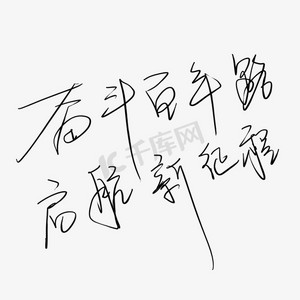 奋斗百年路
启航新征程
千库网
588ku.com